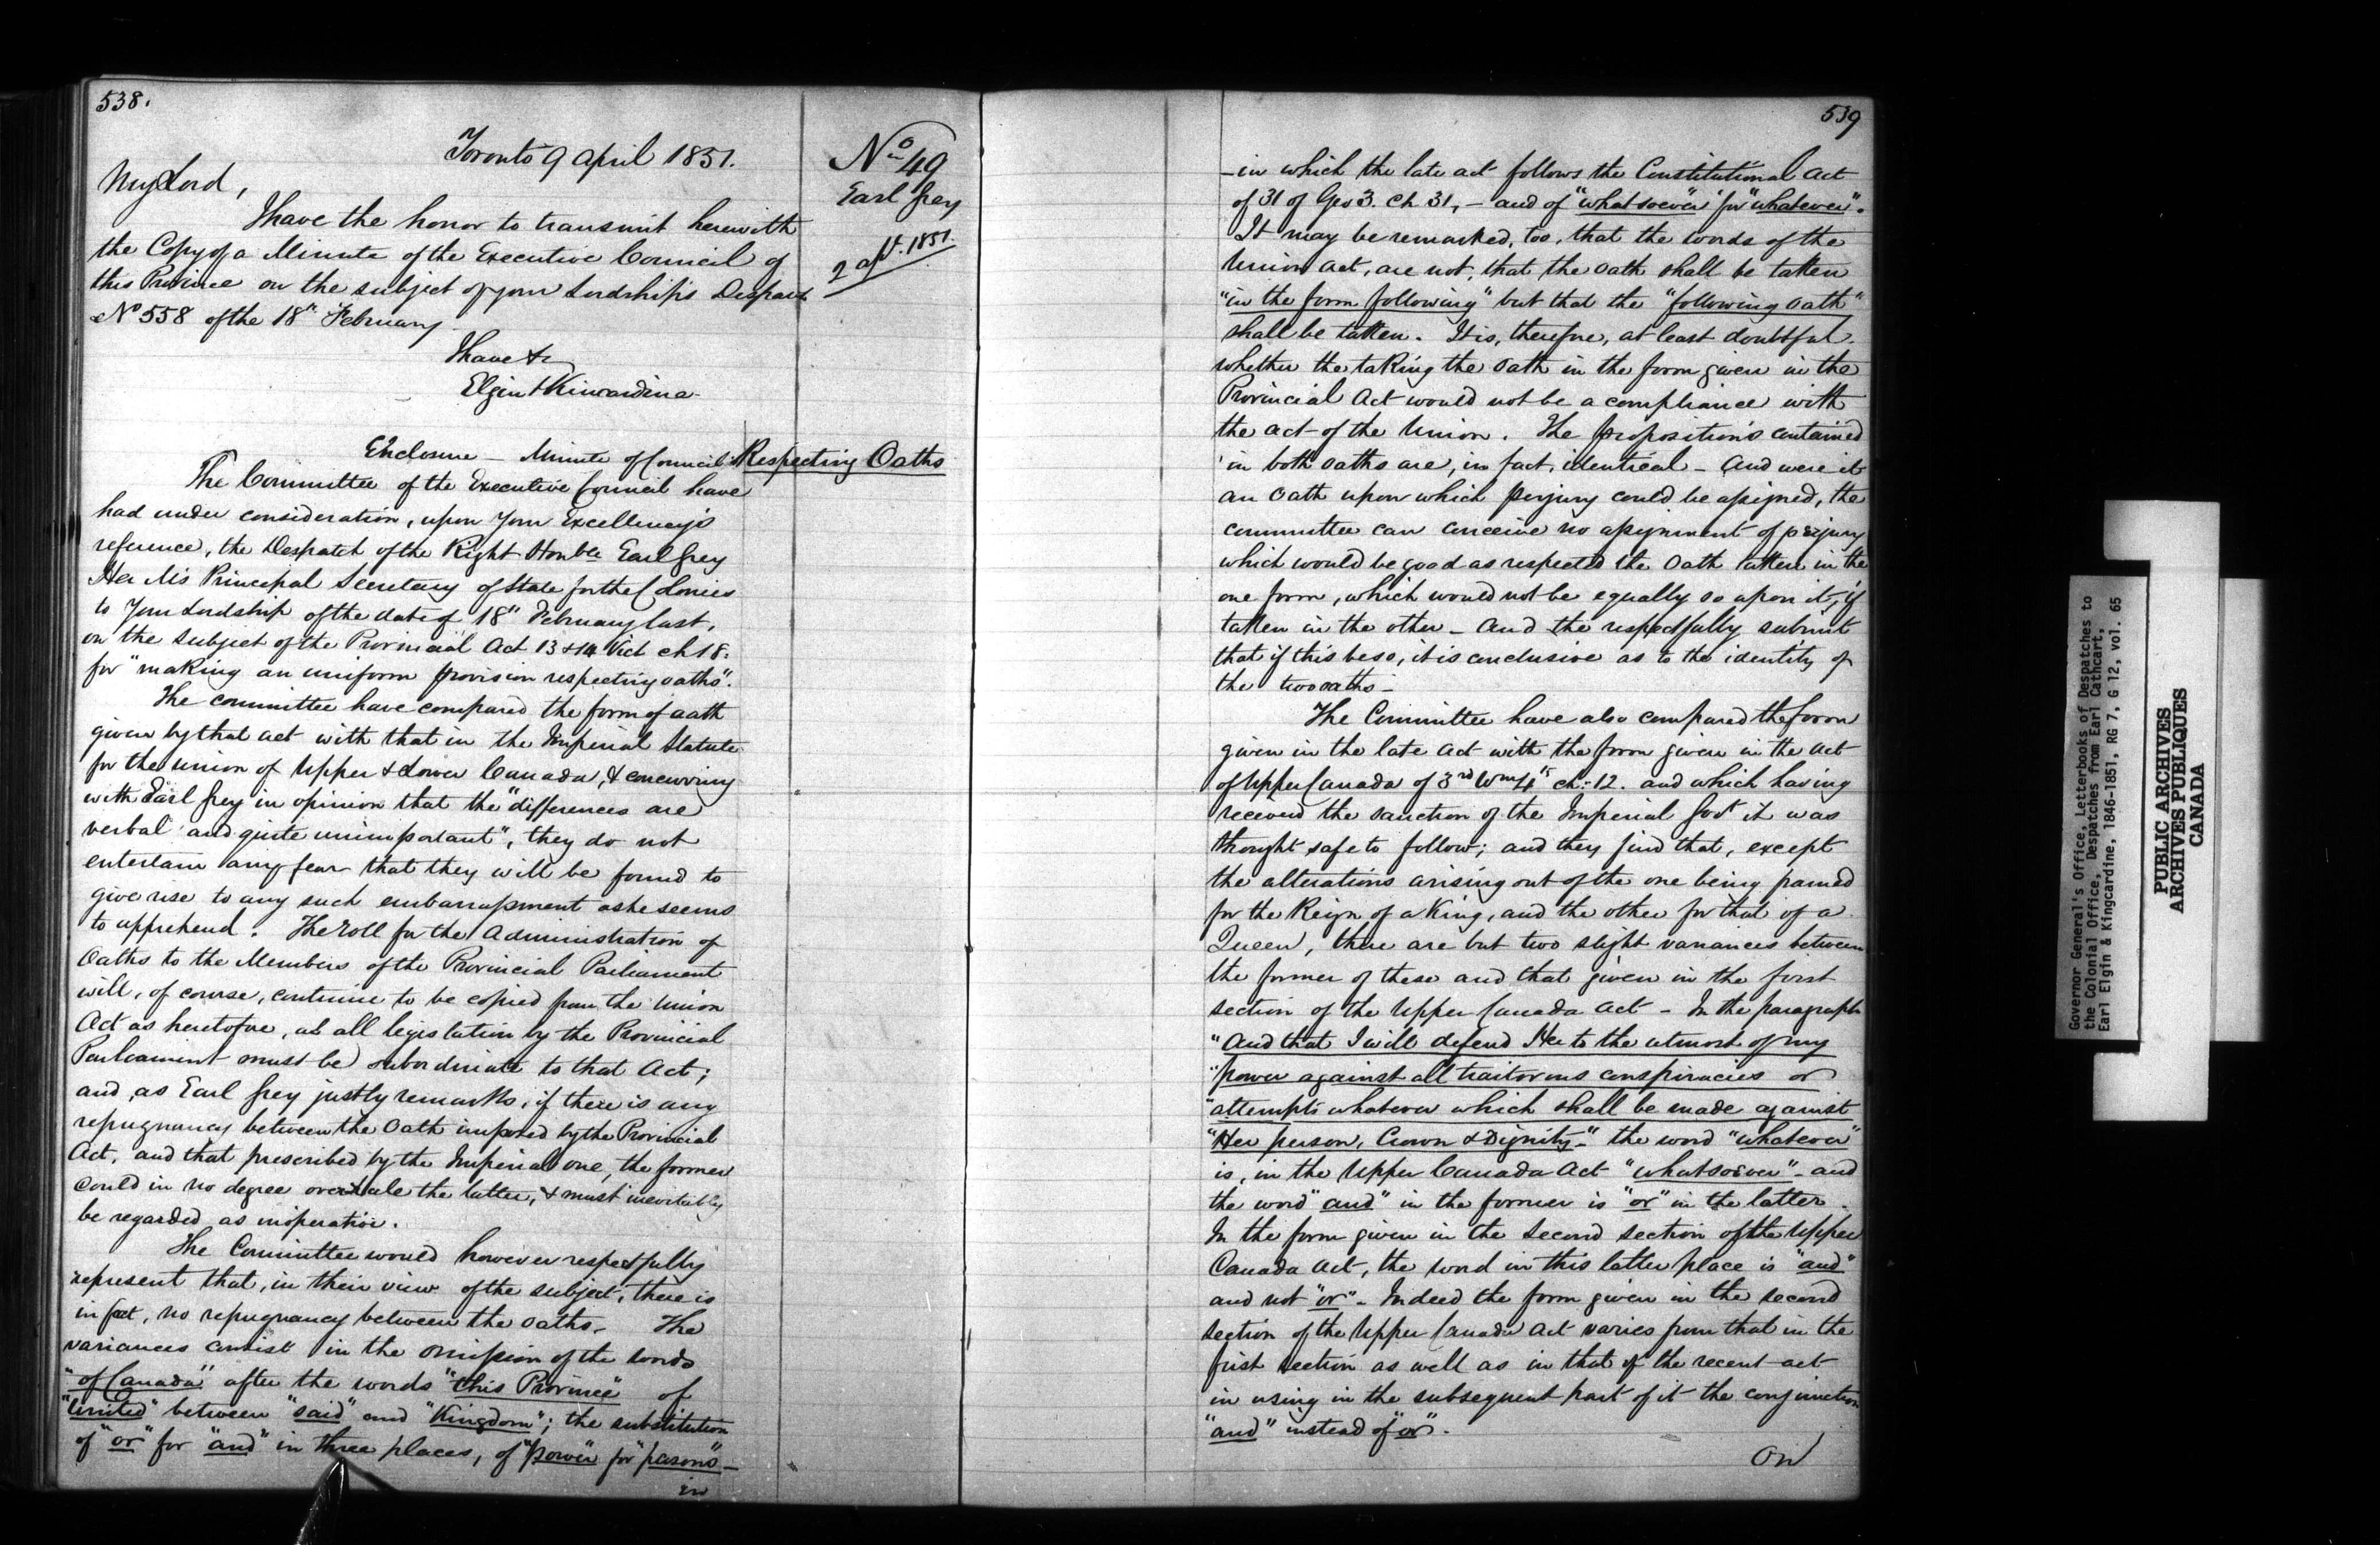 538.
Toronto 9 April 1851.
No 49
Earl Grey
2 apl. 1851.
My Lord,
I have the honor to transmit herewith
the Copy of a Minute of the Executive Council of
this Province on the subject of your Lordship's Despatch
No 558 of the 18th February.
I have &c
Elgin & Kincardine
Enclosure – Minute of Council
Respecting Oaths
The Committee of the Executive Council have
had under consideration, upon Your Excellency's
reference, the Despatch of the Right Honble Earl Grey
Her M's Principal Secretary of State for the Colonies
to Your Lordship of the date of 18th February last,
on the subject of the Provincial Act 13 & 14 Vict ch 18.
for "making an uniform provision respecting oaths".
The committee have compared the form of oath
given by that act with that in the Imperial Statute
for the union of Upper & Lower Canada, & concurring
with Earl Grey in opinion that the "differences are
verbal and quite unimportant", they do not
entertain any fear that they will be found to
give rise to any such embarrassment as he seems
to apprehend. The roll for the Administration of
Oaths to the Members of the Provincial Parliament
will, of course, continue to be copied from the Union
Act as heretofore, as all legislation by the Provincial
Parliament must be subordinate to that Act;
and, as Earl Grey justly remarks, if there is any
repugnancy between the Oath imposed by the Provincial
Act, and that prescribed by the Imperial one, the former
could in no degree override the latter, & must inevitably
be regarded as inoperative.
The Committee would however respectfully
represent that, in their view of the subject, there is
in fact, no repugnancy between the oaths – The
variances consist in the omission of the words
"of Canada" after the words "this Province" of
"United" between "said" and "Kingdom"; the substitution
of "or" for "and" in three places, of "power" for "persons" –
in
539
– in which the late act follows the Constitutional Act
of 31 of Geo 3. ch 31, – and of "whatsoever" for "whatever".
It may be remarked, too, that the words of the
Union Act, are not, that the oath shall be taken
"in the form following" but that the "following oath"
shall be taken. It is, therefore, at least doubtful
whether the taking the oath in the form given in the
Provincial Act would not be a compliance with
the act of the Union. The propositions contained
in both oaths are, in fact, identical – And were it
an oath upon which perjury could be assigned, the
committee can conceive no assignment of perjury
which would be good as respected the Oath taken in the
one form, which would not be equally so upon it, if
taken in the other – And the respectfully submit
that if this be so, it is conclusive as to the identity of
the two oaths –
The Committee have also compared the form
given in the late Act with the form given in the act
of Upper Canada of 3rd Wm 4th ch: 12. and which having
received the sanction of the Imperial Govt it was
thought safe to follow; and they find that, except
the alterations arising out of the one being framed
for the Reign of a King, and the other for that of a
Queen, there are but two slight variances between
the former of these and that given in the first
section of the Upper Canada Act – In the paragraph
"And that I will defend Her to the utmost of my
"power against all traitorous conspiracies or
"attempts whatever which shall be made against
"Her person, Crown & Dignity –" the word "whatever"
is, in the Upper Canada Act "whatsoever" – and
the word "and" in the former is "or" in the latter.
In the form given in the second section of the Upper
Canada Act, the word in this latter place is "and"
and not "or" – Indeed the form given in the second
section of the Upper Canada Act varies from that in the
first section as well as in that of the recent act
in using in the subsequent part of it the conjunction
"and" instead of "or".
On
Governor General's Office, Letterbooks of Despatches to
the Colonial Office, Despatches from Earl Cathcart,
Earl Elgin & Kingcardine, 1846-1851, RG 7, G 12, vol. 65
PUBLIC ARCHIVES
ARCHIVES PUBLIQUES
CANADA